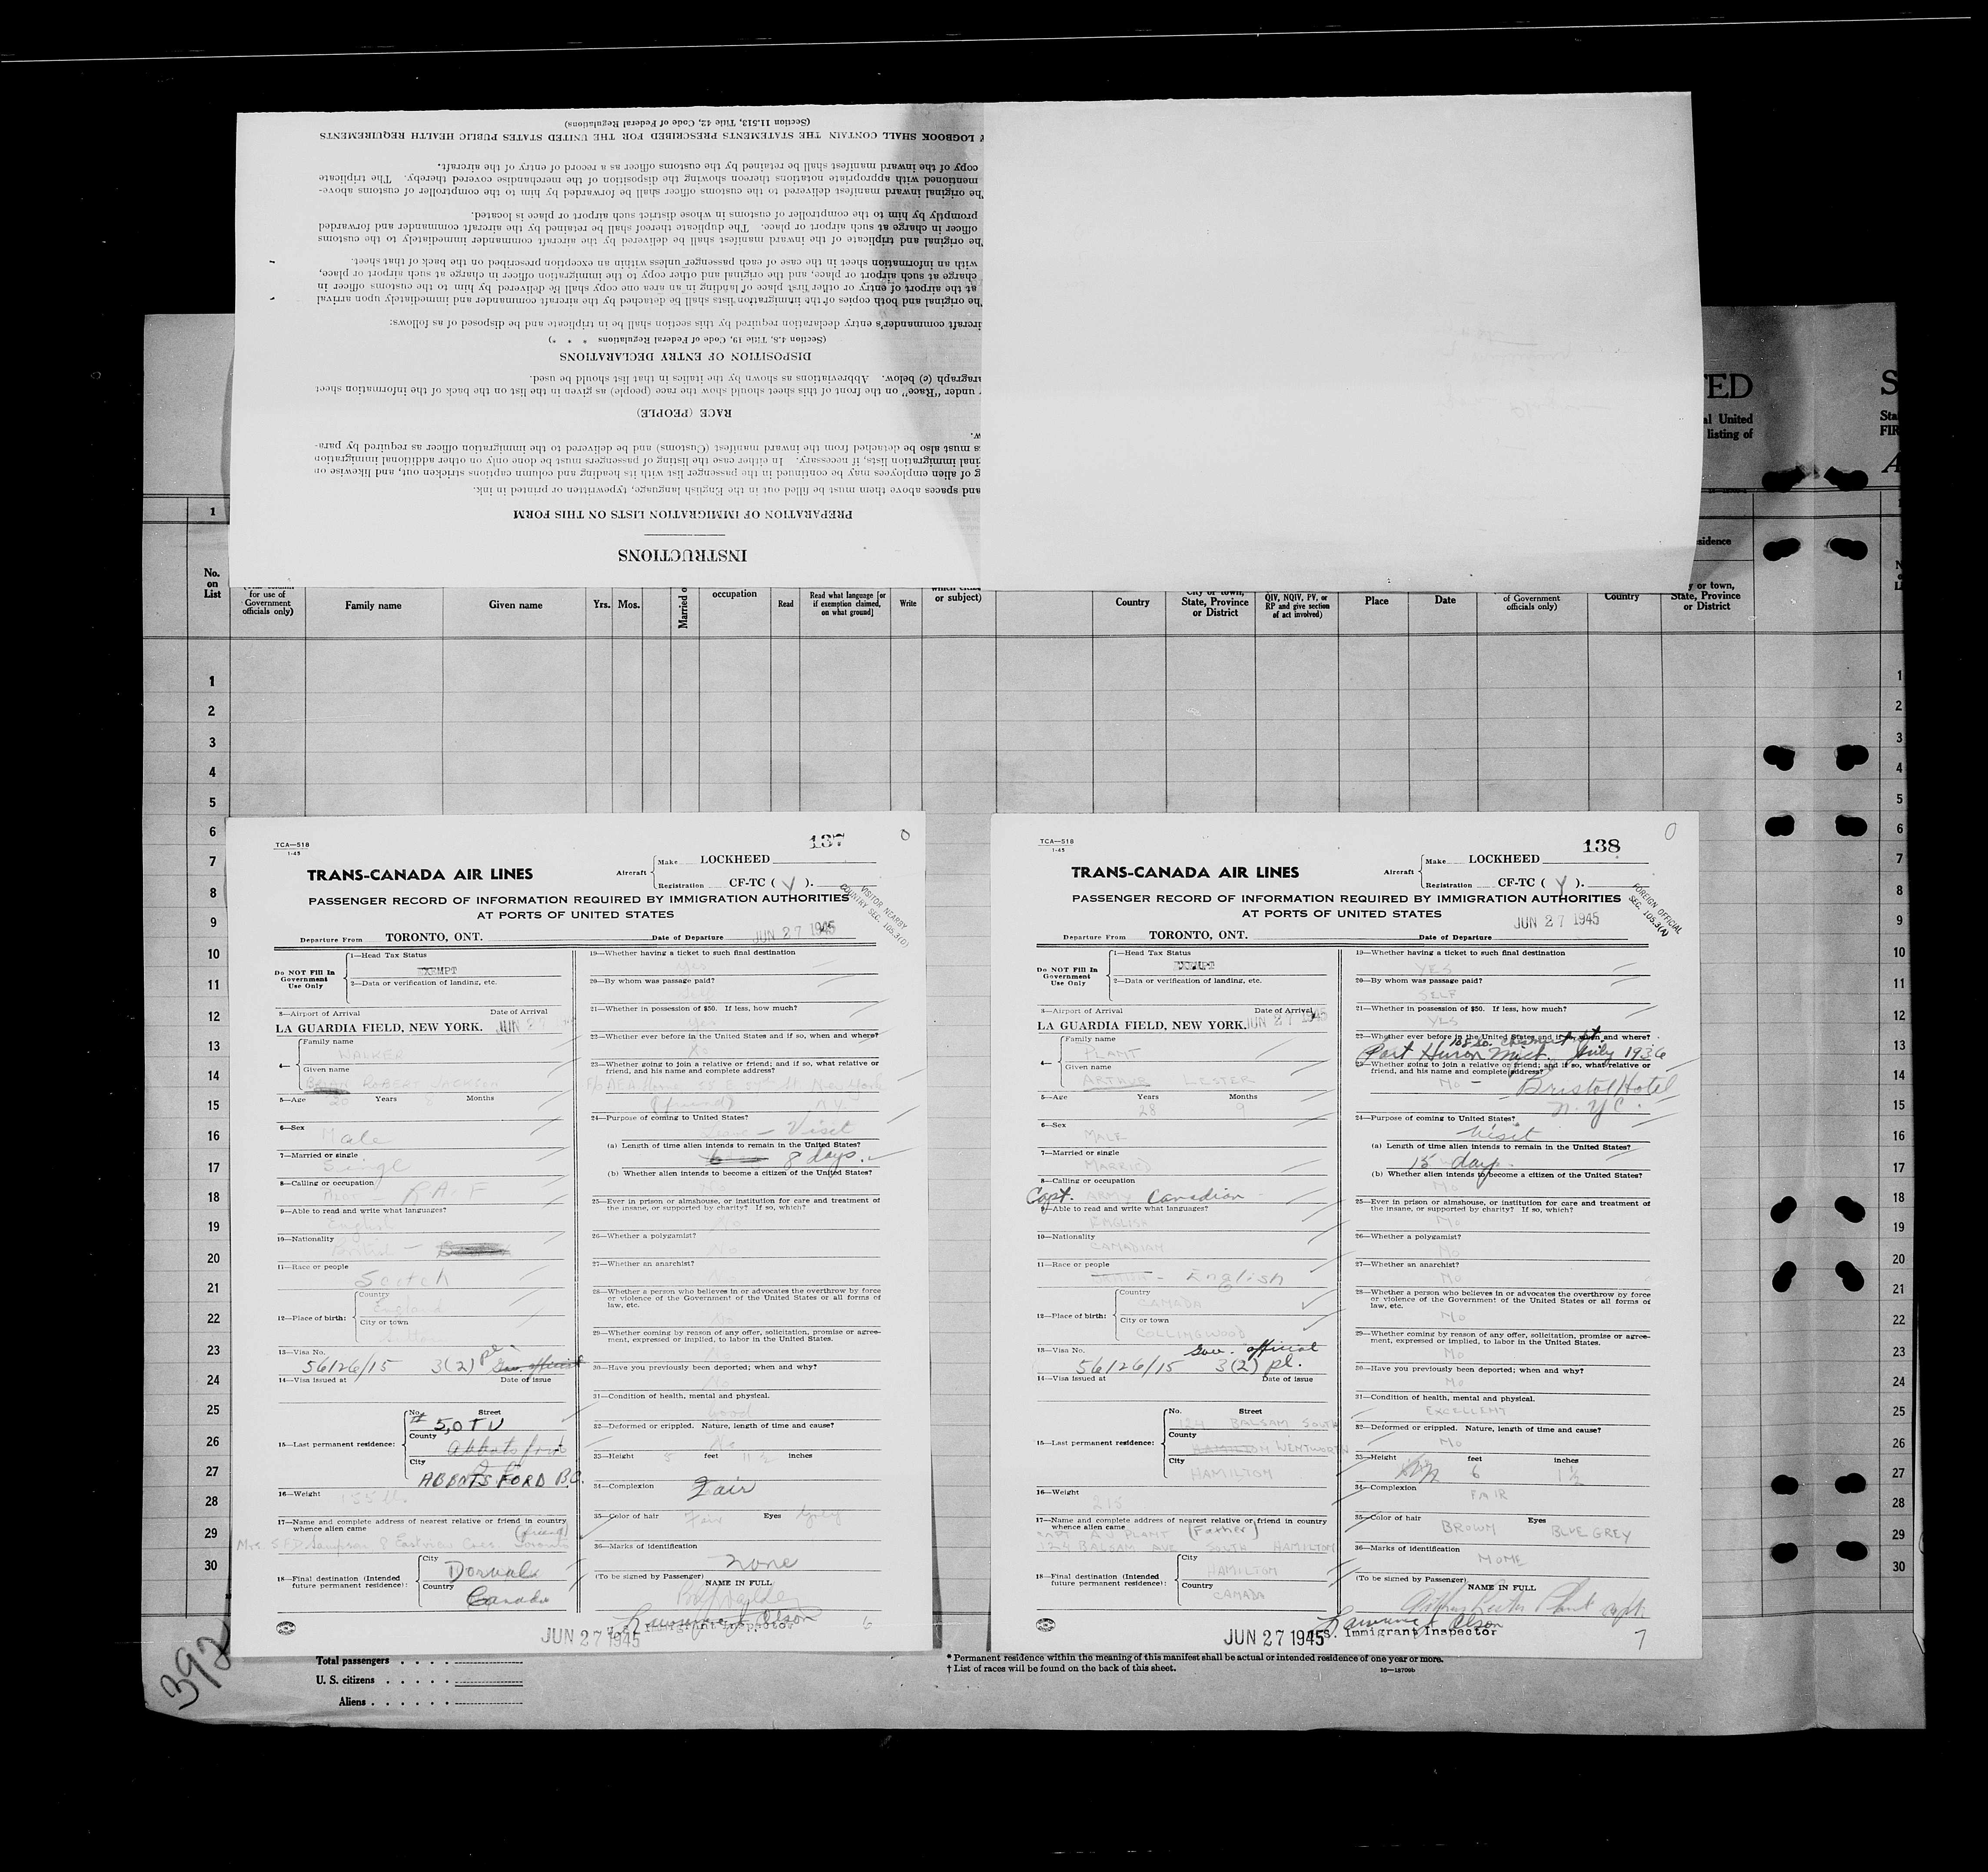 INSTRUCTIONS
PREPARATION OF IMMIGRATION LISTS ON THIS FORM
and spaces above them must be filled out in the English language, typewritten or printed in ink.
g of alien employees may be continued in the passenger list with its heading and column captions stricken out, and likewise on
inal immigration lists, if necessary. In either case the listing of passengers must be done only on other additional immigration
s must also be detached from the inward manifest (Customs) and be delivered to the immigration officer as required by para-
w.
RACE (PEOPLE)
under "Race" on the front of this sheet should show the race (people) as given in the list on the back of the information sheet
aragraph (c) below. Abbreviations as shown by the italics in that list should be used.
DISPOSITION OF ENTRY DECLARATIONS
(Section 4.8, Title 19, Code of Federal Regulations * * *)
ircraft commander's entry declaration required by this section shall be in triplicate and be disposed of as follows:
he original and both copies of the immigration lists shall be detached by the aircraft commander and immediately upon arrival
at the airport of entry or other first place of landing in an area one copy shall be delivered by him to the customs officer in
charge at such airport or place, and the original and other copy to the immigration officer in charge at such airport or place,
with an information sheet in the case of each passenger unless within an exception prescribed on the back of that sheet.
he original and triplicate of the inward manifest shall be delivered by the aircraft commander immediately to the customs
officer in charge at such airport or place. The duplicate thereof shall be retained by the aircraft commander and forwarded
promptly by him to the comptroller of customs in whose district such airport or place is located.
he original inward manifest delivered to the customs officer shall be forwarded by him to the comptroller of customs above-
mentioned with appropriate notations thereon showing the disposition of the merchandise covered thereby. The triplicate
copy of the inward manifest shall be retained by the customs officer as a record of entry of the aircraft.
Y LOGBOOK SHALL CONTAIN THE STATEMENTS PRESCRIBED FOR THE UNITED STATES PUBLIC HEALTH REQUIREMENTS
(Section 11.513, Title 42, Code of Federal Regulations)
TED
al United
listing of
S
Sta
FIR
A
1
sidence
No. on List
for use of Government officials only)
Family name
Given name
Yrs.
Mos.
Married o
occupation
Read
Read what language [or if exemption claimed, on what ground]
Write
or subject)
Country
City or town, State, Province or District
QIV, NQIV, PV, or RP and give section of act involved)
Place
Date
of Government officials only)
Country
y or town, State, Province or District
1
2
3
4
5
6
7
8
9
10
11
12
13
14
15
16
17
18
19
20
21
22
23
24
25
26
27
28
29
30
TCA—518
1-45
137
0
TRANS-CANADA AIR LINES
Aircraft
Make LOCKHEED
Registration CF-TC ( Y ).
PASSENGER RECORD OF INFORMATION REQUIRED BY IMMIGRATION AUTHORITIES
AT PORTS OF UNITED STATES
VISITOR NEARBY
COUNTRY SEC. 105.3(D)
Departure From TORONTO, ONT.
Date of Departure JUN 27 1945
Do NOT Fill In Government Use Only
1—Head Tax Status
EXEMPT
2—Data or verification of landing, etc.
3—Airport of Arrival Date of Arrival
LA GUARDIA FIELD, NEW YORK. JUN 27
4—
Family name
WALKER
Given name
ROBERT JACKSON
5—Age 20 Years Months
6—Sex
Male
7—Married or single
Single
8—Calling or occupation
R.A.F
9—Able to read and write what languages?
English
10—Nationality
British
11—Race or people
Scotch
12—Place of birth:
Country
England
City or town
13—Visa No.
56/26/15 3(2) pl. Gov. official
14—Visa issued at Date of issue
15—Last permanent residence:
No. Street
# 5,OTU
County
Abbotsford
City
ABBOTSFORD B.C.
16—Weight
155 lb.
17—Name and complete address of nearest relative or friend in country whence alien came (friend)
Mrs. S.F.D. Sampson 8 Eastview Cres. Toronto
18—Final destination (Intended future permanent residence):
City
Dorval
Country
Canada
19—Whether having a ticket to such final destination
Yes
20—By whom was passage paid?
21—Whether in possession of $50. If less, how much?
Yes
22—Whether ever before in the United States and if so, when and where?
No
23—Whether going to join a relative or friend; and if so, what relative or friend, and his name and complete address?
(friend) N.Y.
24—Purpose of coming to United States?
Visit
(a) Length of time alien intends to remain in the United States?
8 days.
(b) Whether alien intends to become a citizen of the United States?
No
25—Ever in prison or almshouse, or institution for care and treatment of the insane, or supported by charity? If so, which?
No
26—Whether a polygamist?
No
27—Whether an anarchist?
28—Whether a person who believes in or advocates the overthrow by force or violence of the Government of the United States or all forms of law, etc.
No
29—Whether coming by reason of any offer, solicitation, promise or agreement, expressed or implied, to labor in the United States.
30—Have you previously been deported; when and why?
No
31—Condition of health, mental and physical.
Good
32—Deformed or crippled. Nature, length of time and cause?
No
33—Height 5 feet 11 ½ inches
34—Complexion
Fair
35—Color of hair Fair Eyes
36—Marks of identification
None
(To be signed by Passenger) NAME IN FULL
Lawrence J. Olson
Immigrant Inspector
JUN 27 1945
6
TCA—518
1-45
138
0
TRANS-CANADA AIR LINES
Aircraft
Make LOCKHEED
Registration CF-TC ( Y ).
PASSENGER RECORD OF INFORMATION REQUIRED BY IMMIGRATION AUTHORITIES
AT PORTS OF UNITED STATES
FOREIGN OFFICIAL
SEC. 105.3(A)
Departure From TORONTO, ONT.
Date of Departure JUN 27 1945
Do NOT Fill In Government Use Only
1—Head Tax Status
EXEMPT
2—Data or verification of landing, etc.
3—Airport of Arrival Date of Arrival
LA GUARDIA FIELD, NEW YORK. JUN 27 1945
4—
Family name
PLANT
Given name
ARTHUR LESTER
5—Age 28 Years 9 Months
6—Sex
MALE
7—Married or single
MARRIED
8—Calling or occupation
Capt. ARMY Canadian
9—Able to read and write what languages?
ENGLISH
10—Nationality
CANADIAN
11—Race or people
English
12—Place of birth:
Country
CANADA
City or town
COLLINGWOOD
13—Visa No. Gov. official
56/26/15 3(2) pl.
14—Visa issued at Date of issue
15—Last permanent residence:
No. Street
124 BALSAM SOUTH
County
HAMILTON WENTWORTH
City
HAMILTON
16—Weight
215
17—Name and complete address of nearest relative or friend in country whence alien came
PLANT (Father)
124 BALSAM AVE SOUTH HAMILTON
18—Final destination (Intended future permanent residence):
City
HAMILTON
Country
CANADA
19—Whether having a ticket to such final destination
YES
20—By whom was passage paid?
SELF
21—Whether in possession of $50. If less, how much?
YES
22—Whether ever before in the United States and if so, when and where?
Port Huron Mich. July 1936
23—Whether going to join a relative or friend; and if so, what relative or friend, and his name and complete address?
No — Bristol Hotel
N.Y.C.
24—Purpose of coming to United States?
Visit
(a) Length of time alien intends to remain in the United States?
15 days
(b) Whether alien intends to become a citizen of the United States?
No
25—Ever in prison or almshouse, or institution for care and treatment of the insane, or supported by charity? If so, which?
No
26—Whether a polygamist?
No
27—Whether an anarchist?
No
28—Whether a person who believes in or advocates the overthrow by force or violence of the Government of the United States or all forms of law, etc.
No
29—Whether coming by reason of any offer, solicitation, promise or agreement, expressed or implied, to labor in the United States.
No
30—Have you previously been deported; when and why?
No
31—Condition of health, mental and physical.
EXCELLENT
32—Deformed or crippled. Nature, length of time and cause?
No
33—Height 6 feet 1 ½ inches
34—Complexion
FAIR
35—Color of hair BROWN Eyes BLUE GREY
36—Marks of identification
NONE
(To be signed by Passenger) NAME IN FULL
Arthur Lester Plant Capt.
Lawrence J. Olson
U.S. Immigrant Inspector
JUN 27 1945
7
392
Total passengers
U. S. citizens
Aliens
* Permanent residence within the meaning of this manifest shall be actual or intended residence of one year or more.
† List of races will be found on the back of this sheet.
16—18709b